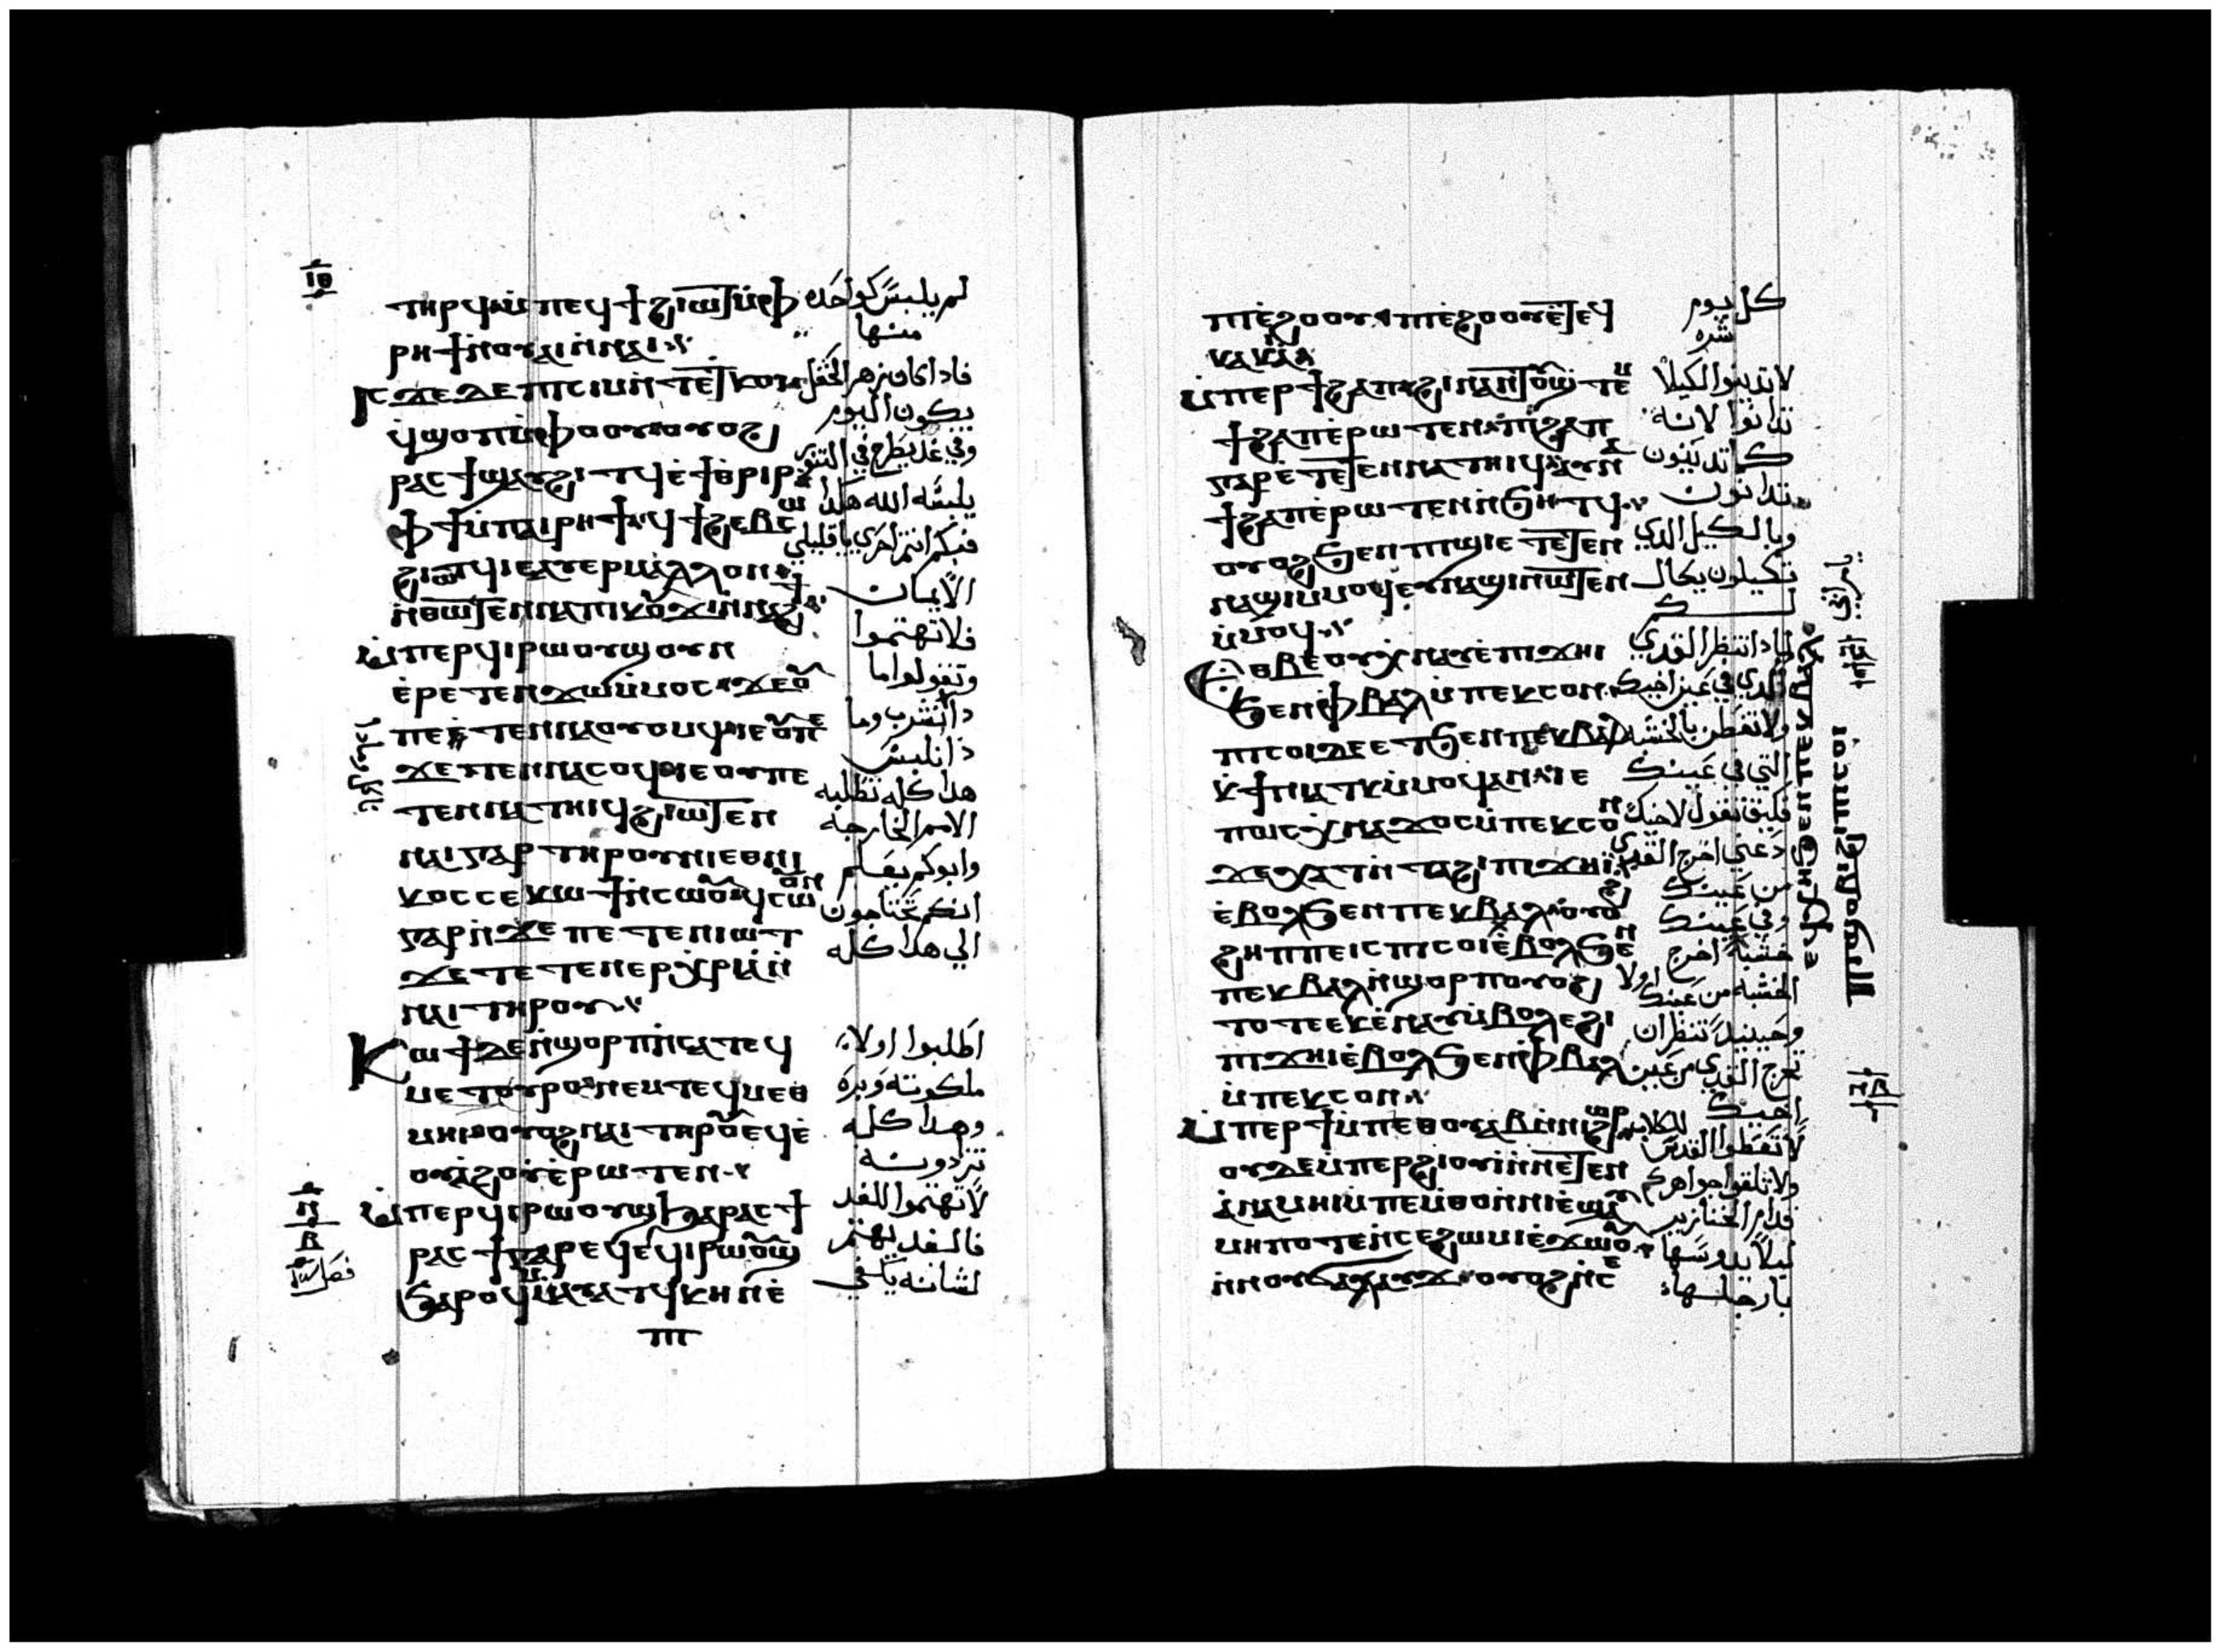 ⲓⲑ
ⲧⲏⲣϥ ⲙⲡⲉϥϯϩⲓⲱⲧϥ ⲙⲫ
ⲣⲏϯ ⲛⲟⲩⲁⲓ ⲛⲛⲁⲓ
ⲓⲥϫⲉ ⲇⲉ ⲡⲓⲥⲓⲙ ⲛⲧⲉ ⲧⲕⲟⲓ
ϥϣⲟⲡ ⲙⲫⲟⲟⲩ ⲟⲩⲟϩ
ⲣⲁⲥϯ ϣⲁⲩϩⲓⲧϥ ⲉϯⲑⲣⲓⲣ
ⲫϯ ⲙⲡⲁⲓⲣⲏϯ ϥϯϩⲉⲃⲥⲱ
ϩⲓⲱⲧϥ ⲓⲉ ⲁⲩⲉⲣ ⲙⲁⲗⲗⲟⲛ
ⲛⲑⲱⲧⲉⲛ ⲛⲁⲡⲓⲕⲟⲩϫⲓ ⲛⲛⲁϩϯ
ⲙⲡⲉⲣϥⲓⲣⲱⲟⲩϣ ⲟⲩⲛ
ⲉⲣⲉⲧⲉⲛϫⲱ ⲙⲙⲟⲥ ϫⲉ ⲟⲩ
ⲡⲉⲧⲉⲛⲛⲁⲟⲩⲟⲙϥ ⲓⲉ ⲟⲩⲡⲉ
ϫⲉⲧⲉⲛⲛⲁⲥⲟϥ ⲓⲉ ⲟⲩ ⲡⲉ
ⲧⲉⲛⲛⲁⲧⲏⲓϥ ϩⲓⲱⲧⲉⲛ
ⲛⲁⲓ ⲅⲁⲣ ⲧⲏⲣⲟⲩ ⲛⲓⲉⲑⲛⲓ
ⲕⲟⲥ ⲥⲉⲕⲱϯ ⲛⲥⲱⲟⲩ ϥⲥⲱⲟⲩⲛ
ⲅⲁⲣ ⲛϫⲉ ⲡⲉⲧⲉⲛⲓⲱⲧ
ϫⲉ ⲧⲉⲧⲉⲛⲉⲣⲭⲣⲓⲁ ⲛ
ⲛⲁⲓ ⲧⲏⲣⲟⲩ
ⲕⲱϯ ⲇⲉ ⲛϣⲟⲣⲡ ⲛⲥⲁ ⲧⲉϥ
ⲙⲉⲧⲟⲩⲣⲟ ⲛⲉⲙ ⲧⲉϥⲙⲉⲑ
ⲙⲏⲓ ⲟⲩⲟϩ ⲛⲁⲓ ⲧⲏⲣⲟⲩ ⲉϥⲉ
ⲟⲩⲁϩⲟⲩ ⲉⲣⲱⲧⲉⲛ
ⲙⲡⲉⲣϥⲓⲣⲱⲟⲩϣ ϧⲁ ⲣⲁⲥϯ
ⲣⲁⲥϯ ⲅⲁⲣ ⲉϥⲉϥⲓⲣⲱⲟⲩϣ
ϧⲁⲣⲟϥ ⲙⲙⲁⲩⲁⲧϥ ⲕⲏⲛ ⲉ
ⲡⲓ
لم يلبس كواحده
منها
فاداكان زهر الحقل
يكون اليوم
وفي غد يطرح في التنور
يلبسه الله هكدا
فبكم انتم احري يا قليلي
الايمان
فلا تهتموا
وتقولوا ما
دا نشرب وما
ناكل وما دا
دا نلبس
هدا كله تطلبه
الامم الخارجه
وابوكم يعلم
انكم تحتاجون
الي هدا كله
اطلبوا اولا
ملكوته وبره
وهدا كله
تزدونه
لا تهتموا للغد
فالغد يهتم
لشانه يكفي
ⲡⲓⲉϩⲟⲟⲩ ⲡⲓⲉϩⲟⲟⲩ ⲉⲧⲉϥ
ⲕⲁⲕⲓⲁ
ⲙⲡⲉⲣϯϩⲁⲡ ϩⲓⲛⲁ ⲛⲧⲟⲩϣⲧⲉⲙ
ϯϩⲁⲡ ⲉⲣⲱⲧⲉⲛ ⲡⲓϩⲁⲡ
ⲅⲁⲣ ⲉⲧⲉⲧⲉⲛⲛⲁⲧⲏⲓϥ ⲁⲩⲛⲁ
ϯϩⲁⲡ ⲉⲣⲱⲧⲉⲛ ⲛϧⲏⲧϥ
ⲟⲩⲟϩ ϧⲉⲛ ⲡⲓϣⲓ ⲉⲧⲉⲧⲉⲛ
ⲛⲁϣⲓ ⲙⲙⲟϥ ⲉⲩⲛⲁϣⲓ ⲛⲱⲧⲉⲛ
ⲙⲙⲟϥ
ⲉⲑⲃⲉ ⲟⲩ ⲭⲛⲁⲩ ⲉⲡⲓϫⲏⲓ
ϧⲉⲛ ⲫⲃⲁⲗ ⲙⲡⲉⲕⲥⲟⲛ
ⲡⲓⲥⲟⲓ ⲇⲉ ⲉⲧϧⲉⲛ ⲡⲉⲕⲃⲁⲗ
ⲕϯⲛⲓⲁⲧⲕ ⲙⲙⲟϥ ⲁⲛ ⲓⲉ
ⲡⲱⲥ ⲭⲛⲁϫⲟⲥ ⲙⲡⲉⲕⲥⲟⲛ
ϫⲉ ⲭⲁⲧ ⲛⲧⲁϩⲓ ⲡⲓϫⲏⲓ
ⲉⲃⲟⲗ ϧⲉⲛ ⲡⲉⲕⲃⲁⲗ ⲟⲩⲟϩ
ϩⲏⲡⲡⲉ ⲓⲥ ⲡⲓⲥⲟⲓ ⲉⲃⲟⲗ ϧⲉⲛ
ⲡⲉⲕⲃⲁⲗ ⲛϣⲟⲣⲡ ⲟⲩⲟϩ
ⲧⲟⲧⲉ ⲉⲕⲉⲛⲁⲩ ⲙⲃⲟⲗ ⲉϩⲓ
ⲡⲓϫⲏⲓ ⲉⲃⲟⲗ ϧⲉⲛ ⲫⲃⲁⲗ
ⲙⲡⲉⲕⲥⲟⲛ
ⲙⲡⲉⲣϯ ⲙⲡⲉⲑⲟⲩⲁⲃ ⲛⲛⲓⲟⲩϩⲱⲣ
ⲟⲩⲇⲉ ⲙⲡⲉⲣϩⲓⲟⲩⲓ ⲛⲛⲉⲧⲉⲛ
ⲁⲛⲁⲙⲏⲓ ⲙⲡⲉⲙⲑⲟ ⲛⲛⲓⲉϣⲁⲩ
ⲙⲏⲡⲟⲧⲉ ⲛⲥⲉϩⲱⲙⲓ ⲉϫⲱⲟⲩ
ⲛⲛⲟⲩϭⲁⲗⲁⲩϫ ⲟⲩⲟϩ ⲛⲥⲉ
كل يوم
شره
لا تدينوا لكيلا
تدانوا لانه
كما تدينون
تدانون
وبالكيل الدي
تكيلون يكال
لكم
لمادا تنظر القدي
الدي في عين اخيك
ولا تفطن بالخشبه
التي في عينك
فكيف تقول لاخيك
دعني اخرج القدي
من عينك
وفي عينك
خشبه اخرج
الخشبه من عينك اولا
وحينيد تنظر ان
تخرج القدي من عين
اخيك
لا تعطوا القدس للكلاب
ولا تلقوا جواهركم
قدام الخنازير
ليلا يدوسها
بارجلها